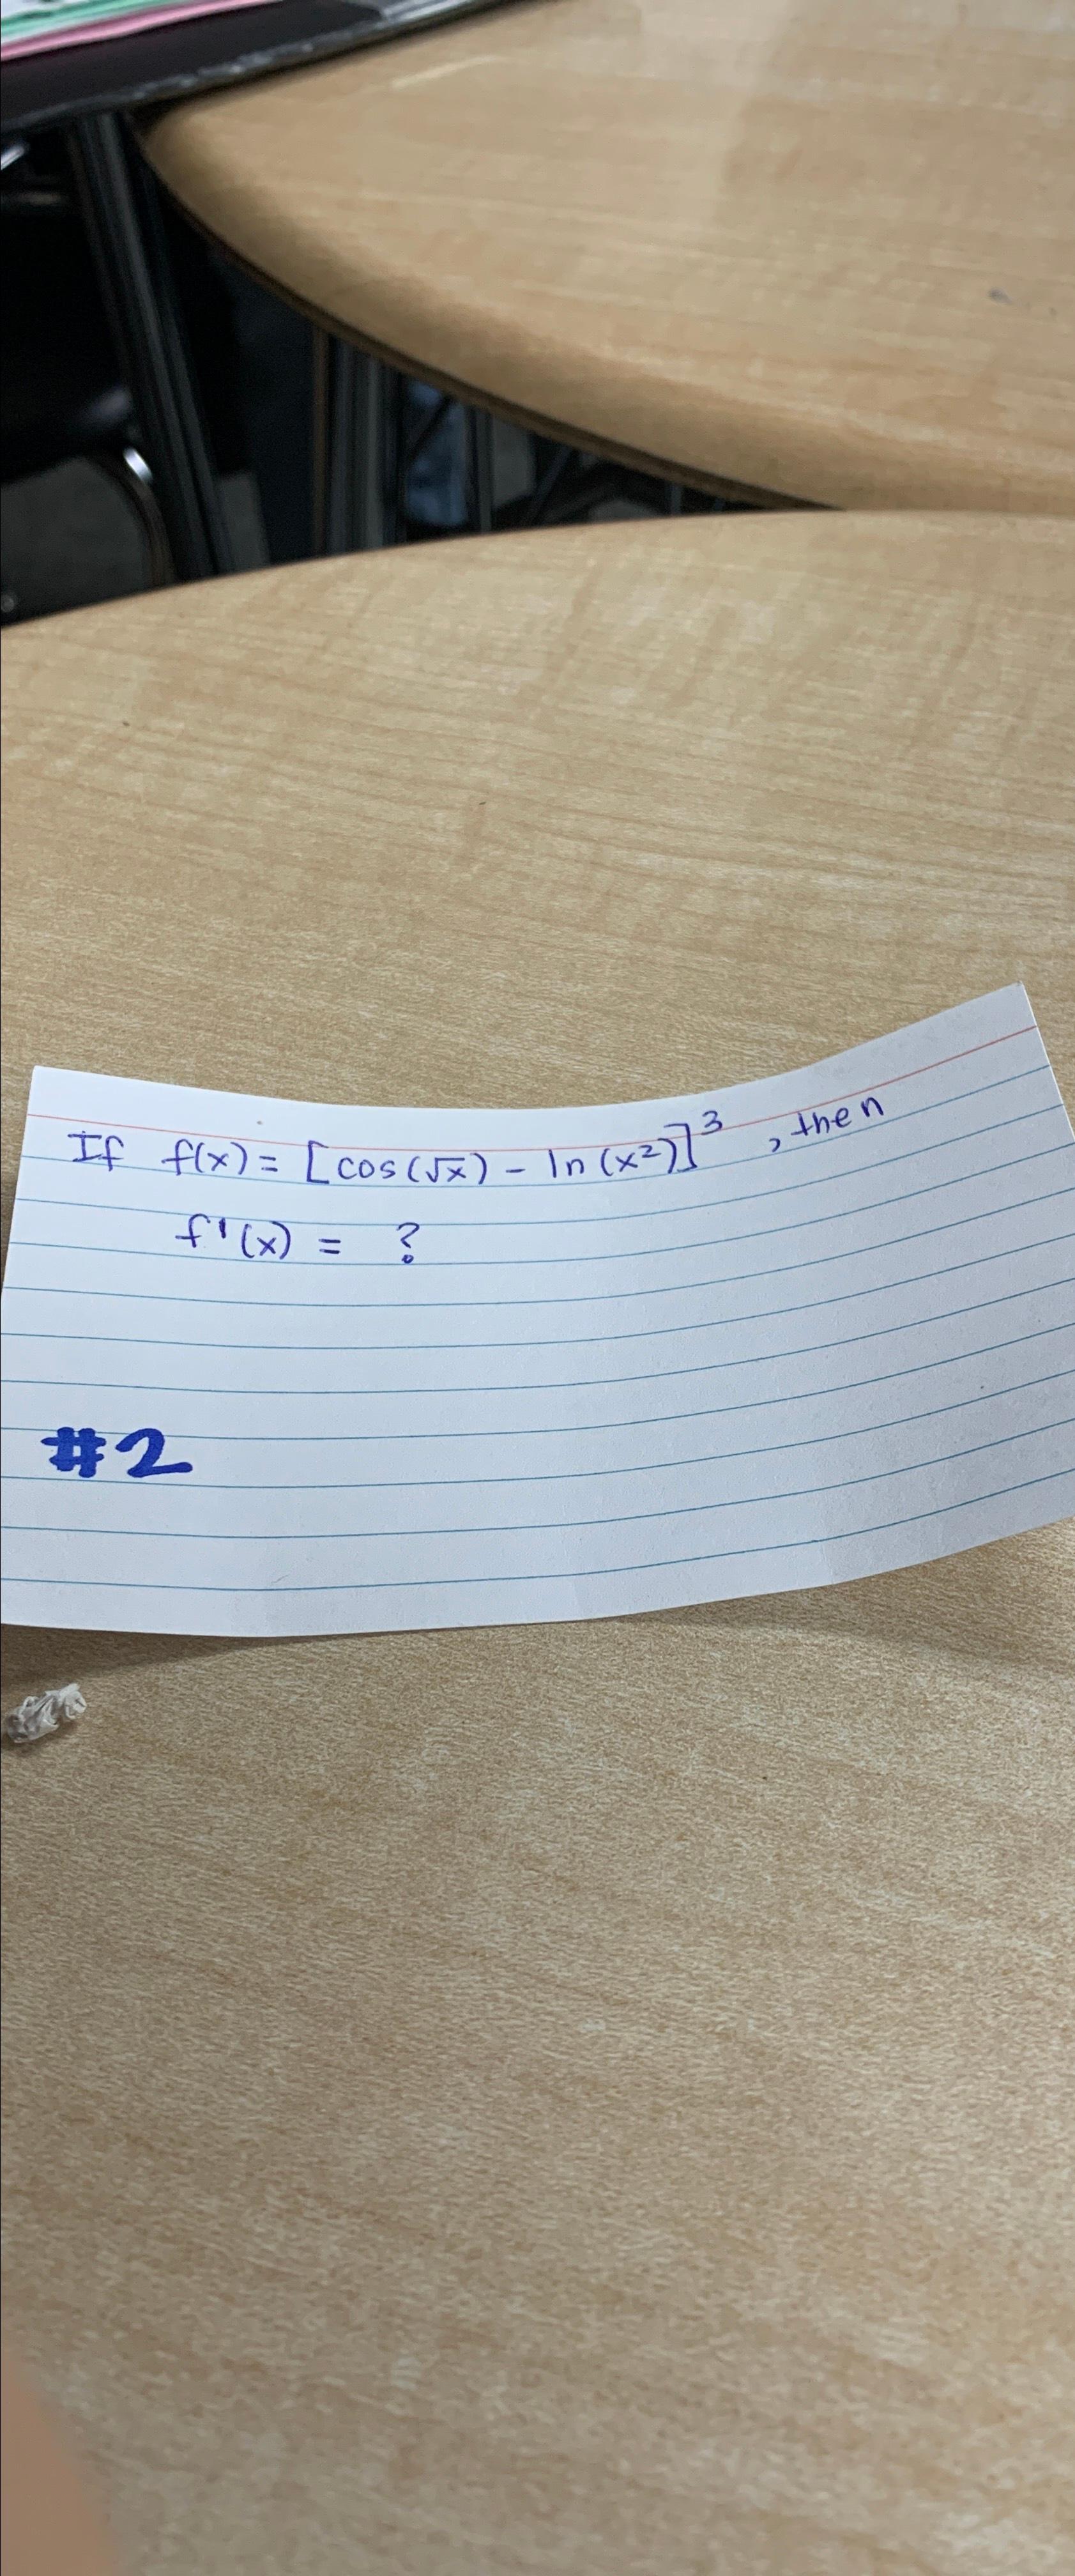 If f(x) = [cos(√x) - ln(x²)]³, then
f'(x) = ?
#2